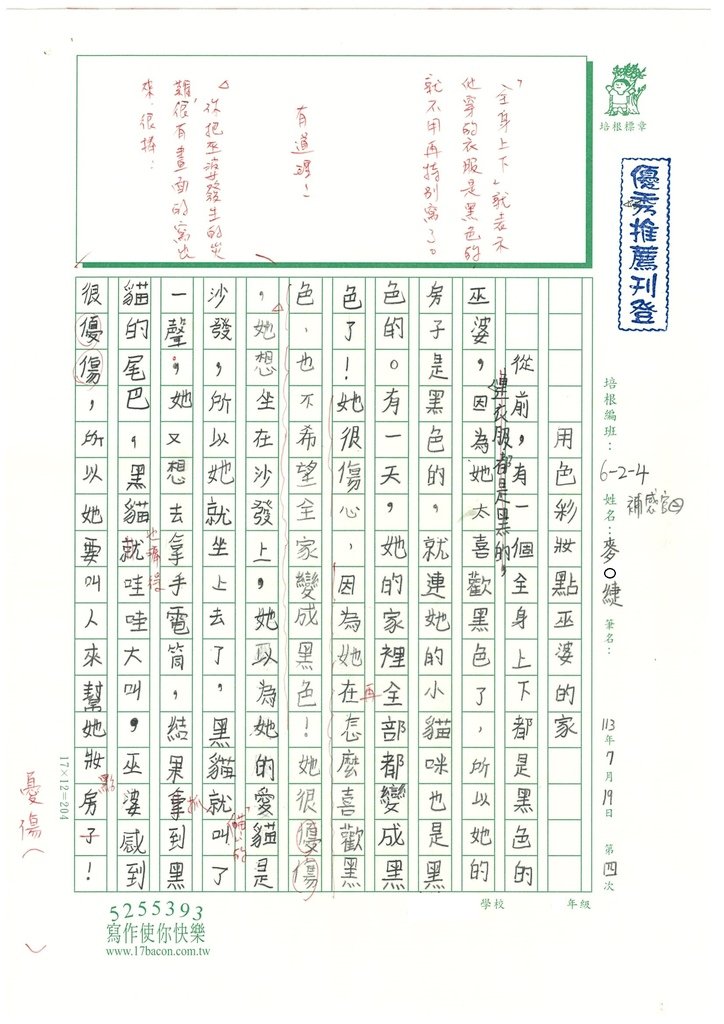 培根標章
優秀推薦刊登
培根編班：6-2-4
姓名：麥○緁
補感官
筆名：
113年7月19日
第四次
學校
年級
「全身上下」就表示
他穿的衣服是黑色的
就不用再特別寫了。
有道理！
你把巫婆發生的災
難很有畫面的寫出
來，很棒！
用色彩妝點巫婆的家
從前，有一個全身上下都是黑色的
連衣服都是黑的，
巫婆，因為她太喜歡黑色了，所以她的
房子是黑色的，就連她的小貓咪也是黑
色的。有一天，她的家裡全部都變成黑
色了！她很傷心，因為她在怎麼喜歡黑
再
色，也不希望全家變成黑色！她很優傷
，她想坐在沙發上，她以為她的愛貓是
沙發，所以她就坐上去了，黑貓就叫了
一聲，她又想去拿手電筒，結果拿到黑
抓
貓的尾巴，黑貓就哇哇大叫，巫婆感到
很優傷，所以她要叫人來幫她妝房子！
點
憂傷
17×12=204
5255393
寫作使你快樂
www.17bacon.com.tw